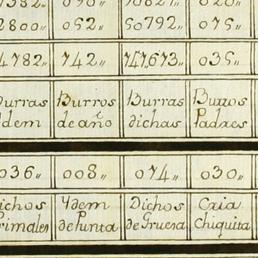 7382„ 090„ 70827„ 020„
2800„ 052„ 50792„ 075„
4782„ 742„ 747,673„ 035„
Burras Burros Burras Burros
Ydem de año dichas Padres
036„ 008„ 074„ 030„
Dichos Ydem Dichos Caia
Primales de Punta de Gruesa Chiquita